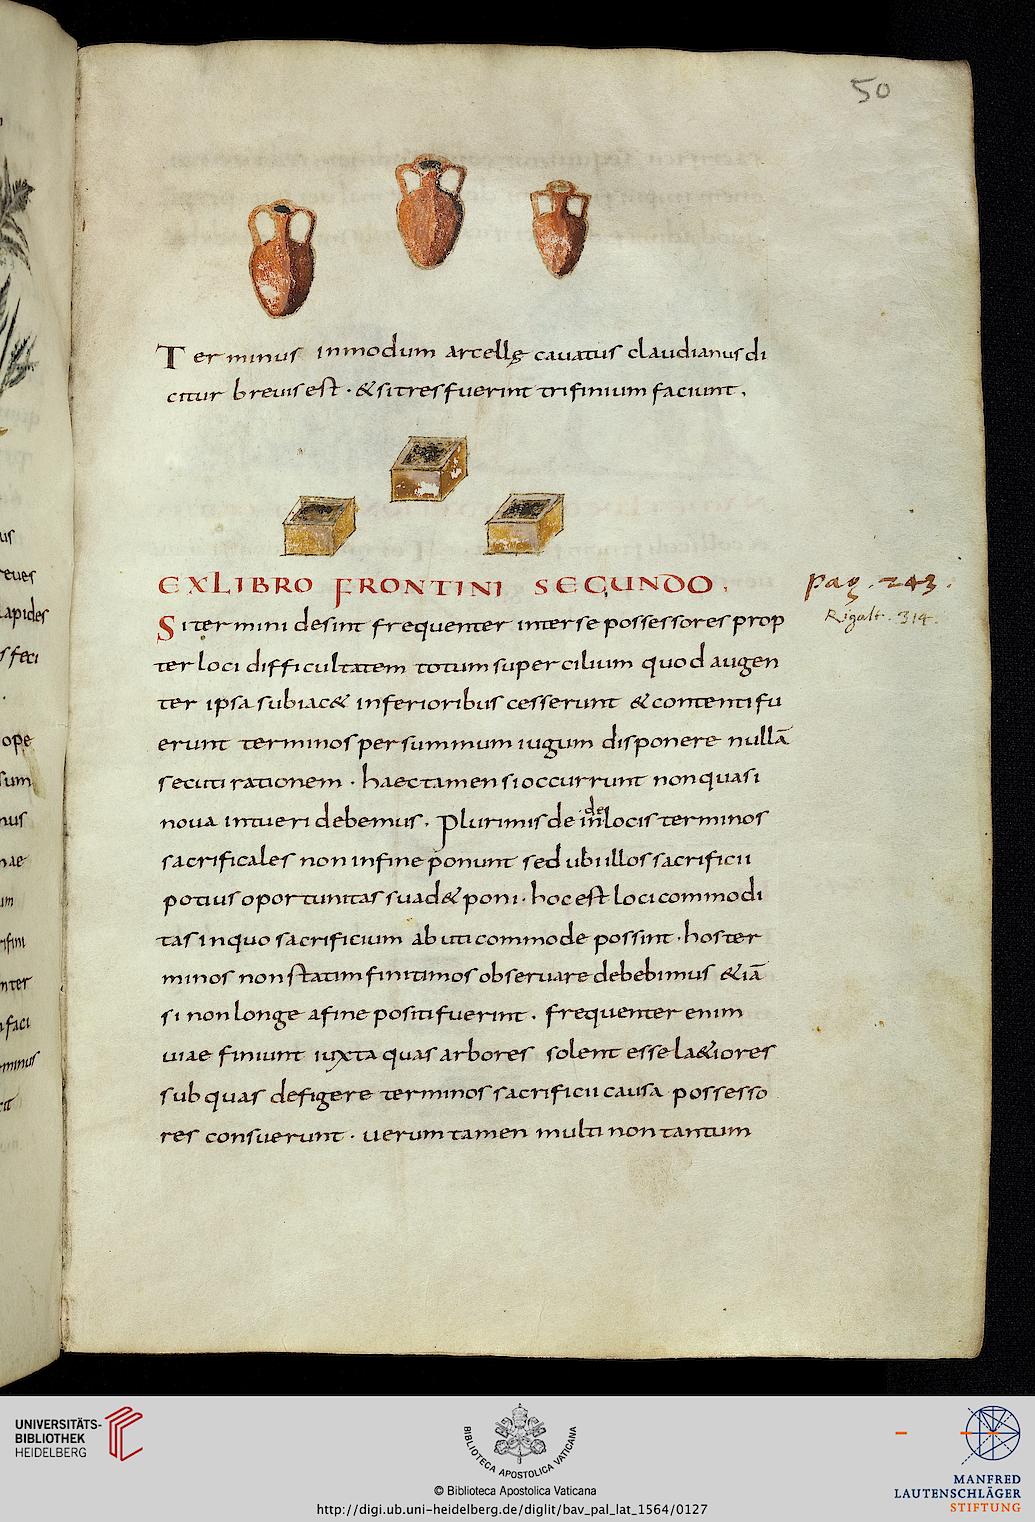 50
Terminus inmodum arcellę cauatus claudianus di
citur breuis est · & si tres fuerint trifinium faciunt.
EX LIBRO FRONTINI SECUNDO.
pag. 243.
Rigalt. 314.
Si termini desint frequenter inter se possessores prop
ter loci difficultatem totum supercilium quod augen
ter ipsa subiac& inferioribus cesserunt & contenti fu
erunt terminos per summum iugum disponere nullā
secuti rationem · haec tamen si occurrunt non quasi
noua intueri debemus. plurimis de in locis terminos
de
sacrificales non in fine ponunt sed ubi illos sacrificii
potius oportunitas suad& poni · hoc est loci commodi
tas in quo sacrificium ab uti commode possint · hos ter
minos non statim finitimos obseruare debebimus & iā
si non longe a fine positi fuerint. frequenter enim
uiae finiunt iuxta quas arbores solent esse la&iores
sub quas defigere terminos sacrificii causa possesso
res consuerunt · uerum tamen multi non tantum
us
reues
lapides
s feci
ope
sum
nus
nae
um
rifini
nter
faci
rminus
UNIVERSITÄTS-
BIBLIOTHEK
HEIDELBERG
BIBLIOTECA APOSTOLICA VATICANA
© Biblioteca Apostolica Vaticana
http://digi.ub.uni-heidelberg.de/diglit/bav_pal_lat_1564/0127
MANFRED
LAUTENSCHLÄGER
STIFTUNG